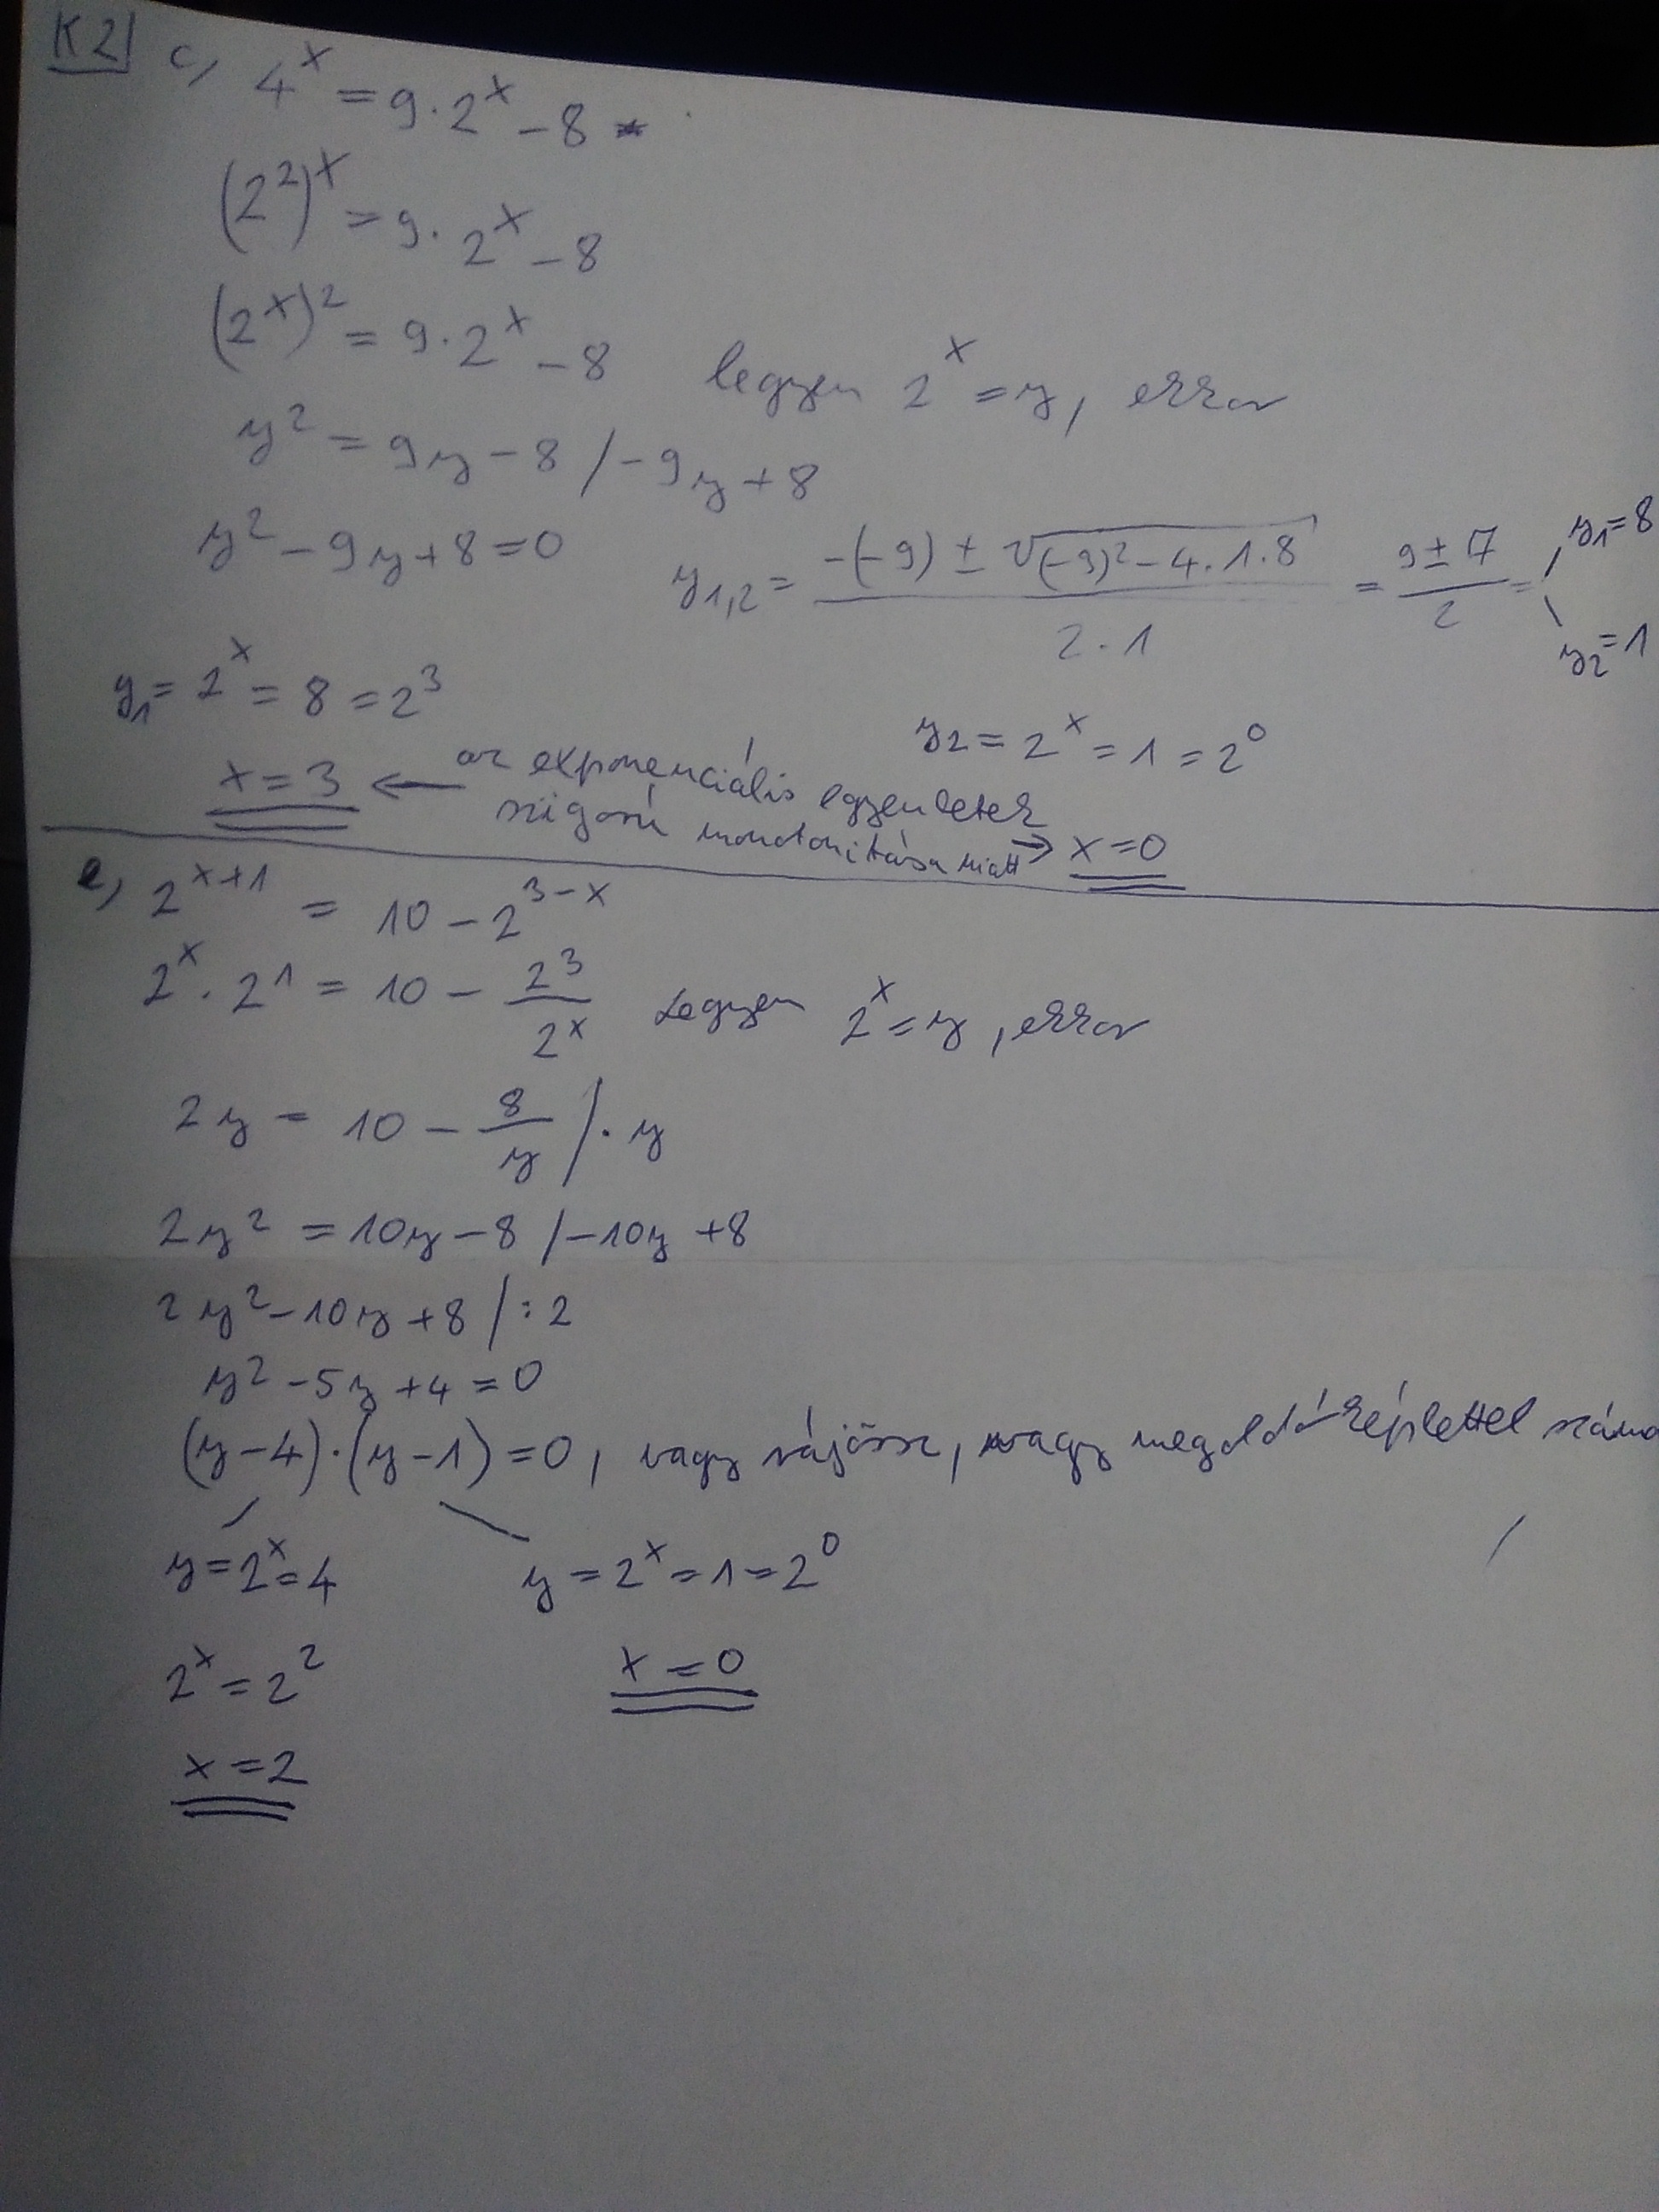 K2 c, 4^x = 9·2^x − 8
(2²)^x = 9·2^x − 8
(2^x)² = 9·2^x − 8 legyen 2^x = y, ekkor
y² = 9y − 8 / −9y + 8
y² − 9y + 8 = 0 y₁,₂ = (−(−9) ± √((−9)² − 4·1·8)) / (2·1) = (9 ± 7) / 2 = y₁ = 8
y₂ = 1
y₁ = 2^x = 8 = 2³ y₂ = 2^x = 1 = 2⁰
x = 3 ← az exponenciális egyenletek
szigorú monotonitása miatt → x = 0
e, 2^(x+1) = 10 − 2^(3−x)
2^x · 2¹ = 10 − 2³/2^x Legyen 2^x = y, ekkor
2y = 10 − 8/y / · y
2y² = 10y − 8 / −10y + 8
2y² − 10y + 8 / :2
y² − 5y + 4 = 0
(y − 4)·(y − 1) = 0, vagy rájössz, vagy megoldóképlettel
y = 2^x = 4 y = 2^x = 1 = 2⁰
2^x = 2² x = 0
x = 2